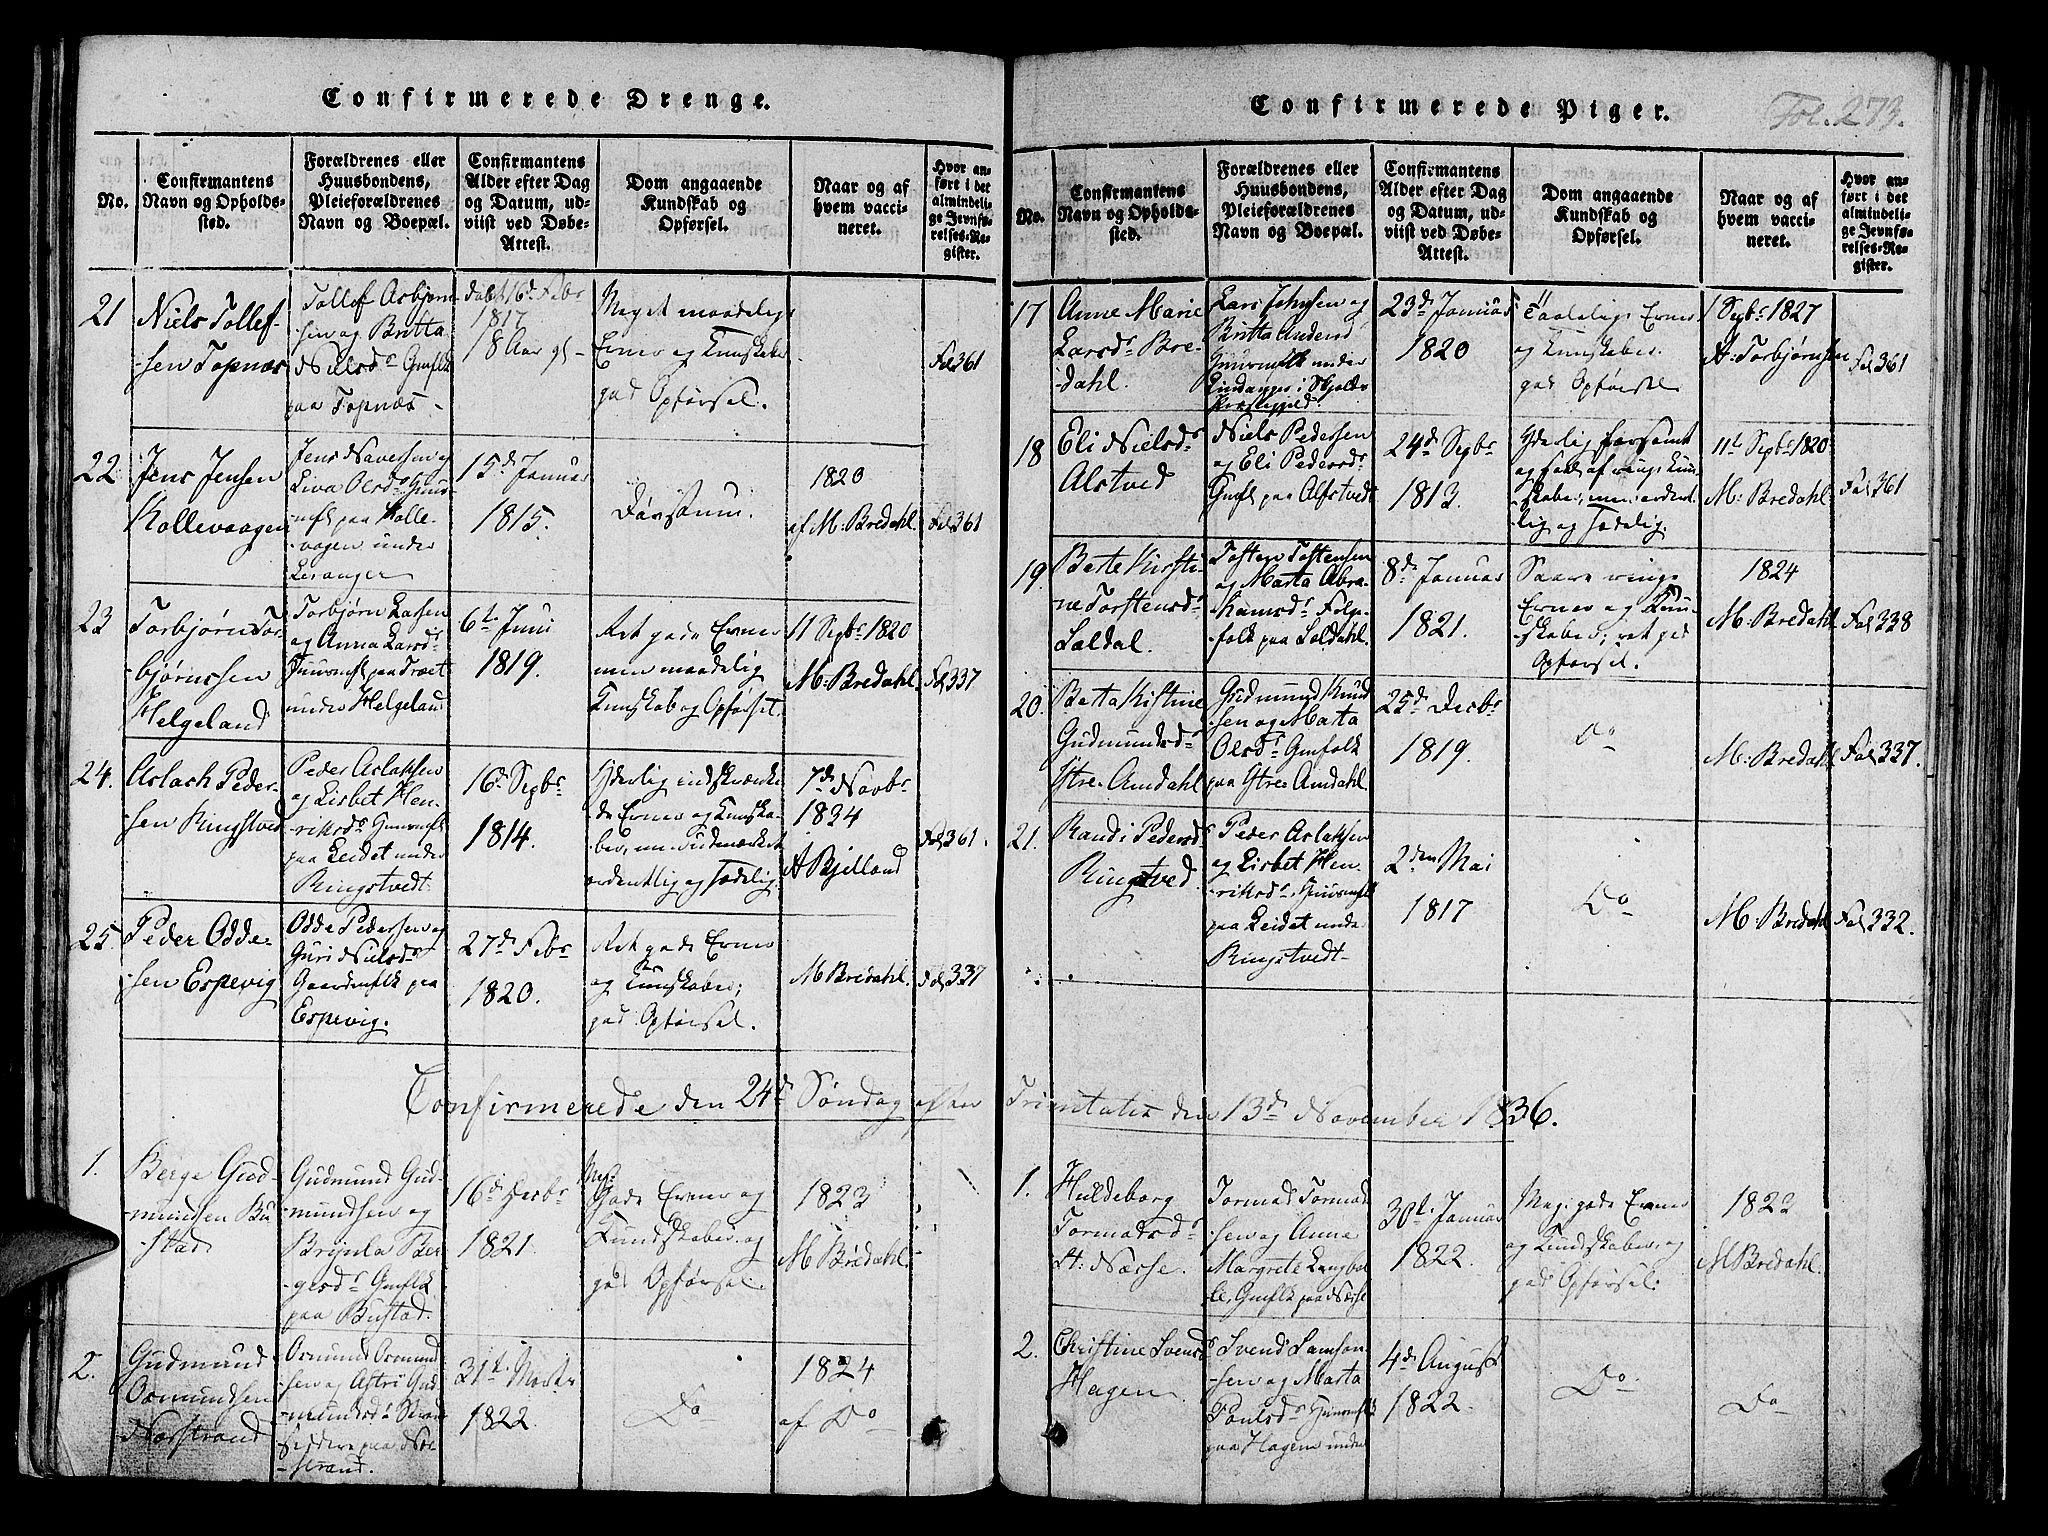 Confirmerede Drenge.
No.
Confirmantens
Navn og Opholds-
sted.
Forældrenes eller
Huusbondens,
Pleieforældrenes
Navn og Boepæl.
Confirmantens
Alder efter Dag
og Datum, ud-
viist ved Døbe-
Attest.
Dom angaaende
Kundskab og
Opførsel.
Naar og af
hvem vacci-
neret.
Hvor an-
ført i det
almindeli-
ge Jevnfø-
relses-Re-
gister.
21
Niels Tollef-
-sen Topnæs
Tollef Asbjørn-
sen og Britta
Nielsdr Gmflk
paa Topnæs
døbt 16d Febr
1817
18 Aar gl-
Meget maadelig
Evner og Kundskaber
god Opførsel.
Fol 361
22
Jens Jensen
Kollevaagen
Jens Naversen og
Liva Olsdr Huus-
mflk paa Kolle-
-vagen under
Leranger
15d Januar
1815.
Døvstum.
1820
af M: Bredahl.
Fol 361
23
Torbjørn Tor-
-bjørnssen
Helgeland
Torbjørn Larsen
og Anna Larsdr
Huusmflk paa Træet
under Helgeland
6t Juni
1819.
Ret gode Evner
men maadelig
Kundskab og Opførsel.
11 Septbr 1820
M: Bredahl.
Fol 337
24.
Aslach Peder-
sen Ringstved
Peder Aslaksen
og Lisbet Hen-
-riksdr Huusmflk
paa Leidet under
Ringstvedt.
16d Septbr
1814.
Yderlig indskrænke-
de Evner og Kundska-
ber,
ordentlig og sædelig.
7d Novbr
1834
A Bjelland
Fol 361.
25
Peder Odde-
-sen Espevig
Odde Pedersen og
Guri Nielsdr
Gaardmflk paa
Espevig.
27d Febr
1820.
Ret gode Evner
og Kundskaber;
god Opførsel.
M Bredahl.
Fol 337
Confirmerede den 24d Søndag efter
1.
Berge Gud-
mundsen Bu
-stad
Gudmund Gud-
mundsen og
Brijula Ber-
gesdr Gmflk
paa Bustad.
16d Decbr
1821.
Meg:
Gode Evner og
Kundskaber og
god Opførsel.
1823
M Bredahl.
2.
Gudmund
Osmundsen
Norstrand
Osmund Osmund-
sen og Astri Gud-
-mundsdr Strand-
siddere paa Nor-
-strand.
31t Marts
1822.
Do
1824
af Do
Confirmerede Piger.
Fol. 273.
No.
Confirmantens
Navn og Opholds-
sted.
Forældrenes eller
Huusbondens,
Pleieforældrenes
Navn og Boepæl.
Confirmantens
Alder efter Dag
og Datum, ud-
viist ved Døbe-
Attest.
Dom angaaende
Kundskab og
Opførsel.
Naar og af
hvem vacci-
neret.
Hvor an-
ført i det
almindeli-
ge Jevnfø-
relses-Re-
gister.
17
Anne Marie
Larsdr Bre-
-dahl.
Lars Johnsen og
Britta
Huusmflk under
i Skjolds
Præstegjeld.
23d Januar
1820
Taalelig Evner
og Kundskaber.
god Opførsel
1 Septbr 1827
A: Torbjørnsen
Fol 361
18
Eli Nielsdr
Alstved
Niels Pedersen
og Eli Pedersdr
Gmflk paa Alfstvedt
24d Septbr
1813.
Yderlig forsømt
og fuld af ringe Kund-
skaber, men ordent-
lig og sædelig.
11t Septbr 1820
M: Bredahl.
Fol 361
19.
Berte Kirsti-
ne Torstensdr
Løldal.
Tosten Tostensen
og Marta Abra-
hamsdr
folk paa Løldahl.
8d Januar
1821.
Saare ringe
Evner og Kund-
skaber; ret god
Opførsel.
1824
M: Bredahl.
Fol 338
20.
Berta Kistine
Gudmundsdr
Ytre-Amdahl
Gudmund Knud
-sen og Marta
Olsdr Gmfolk
paa Ytre Amdahl.
25d Decbr
1819.
Do
M: Bredahl
Fol 337.
21.
Randi Pedersdr
Ringstved.
Peder Aslaksen
og Lisbet Hen-
-riksdr Huusmflk
paa Leidet unde.
Ringstvedt-
2den Mai
1817
Do
M: Bredahl
Fol 332.
Trinitatis den 13d November 1836.
1.
Huldeborg
Tormodsdr
St: Nærse.
Tormod Tormod
-sen og Anne
Margrete Langbal
le, Gmflk paa Nærse
30t Januar
1822.
Meg: gode Evner
og Kundskaber og
god Opførsel.
1823
M Bredahl.
2.
Christine Svensdr
Hagen
Svend Samson
-sen og Marta
Poulsdr Huusmflk
paa Hagen under
4d August
1822.
Do
Do